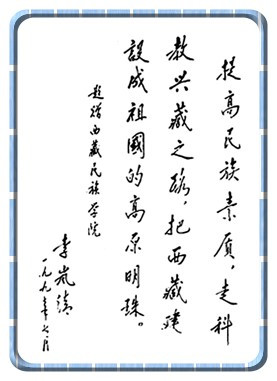 提高民族素质，走科
教兴藏之路，把西藏建
設成祖國的高原明珠。
题赠西藏民族学院
李岚清
一九九年七月